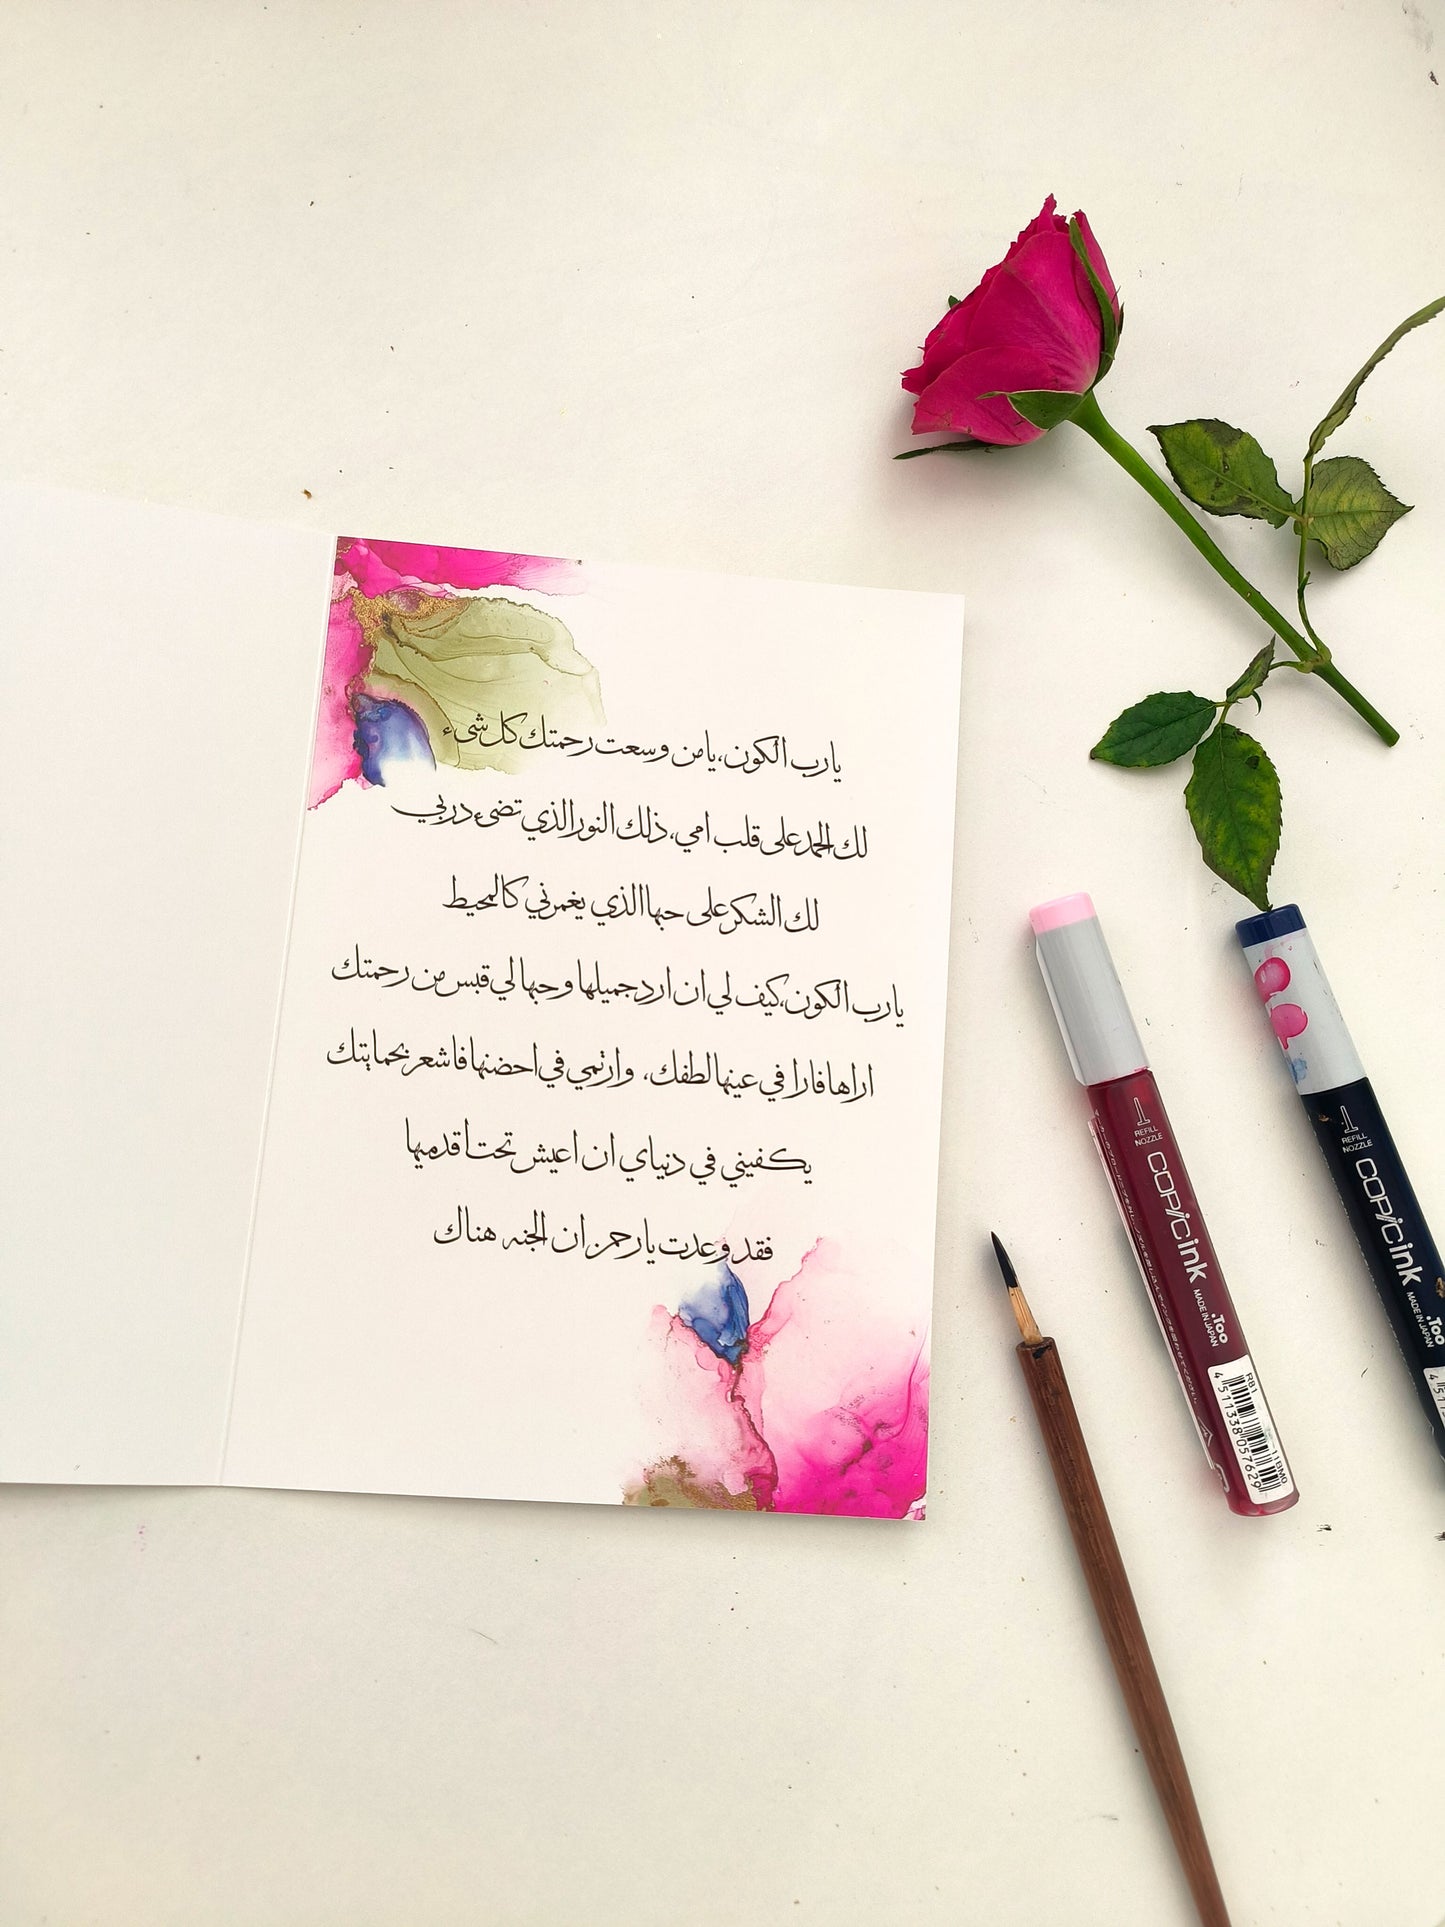 يارب الكون، يامن وسعت رحمتك كل شيء
لك الحمد على قلب امي، ذلك النور الذي تضيء دربي
لك الشكر على حبها الذي يغمرني كالمحيط
يارب الكون، كيف لي ان ارد جميلها وحبها لي قبس من رحمتك
اراها فارا في عينها لطفك، وارتمي في احضنها فاشعر بحمايتك
يكفيني في دنياي ان اعيش تحت اقدميها
فقد وعدت يارحمن ان الجنه هناك
1
REFILL
NOZZLE
COPIC ink
MADE IN JAPAN
.Too
R81
4511338057629
1
REFILL
NOZZLE
COPIC ink
MADE IN JAPAN
.Too